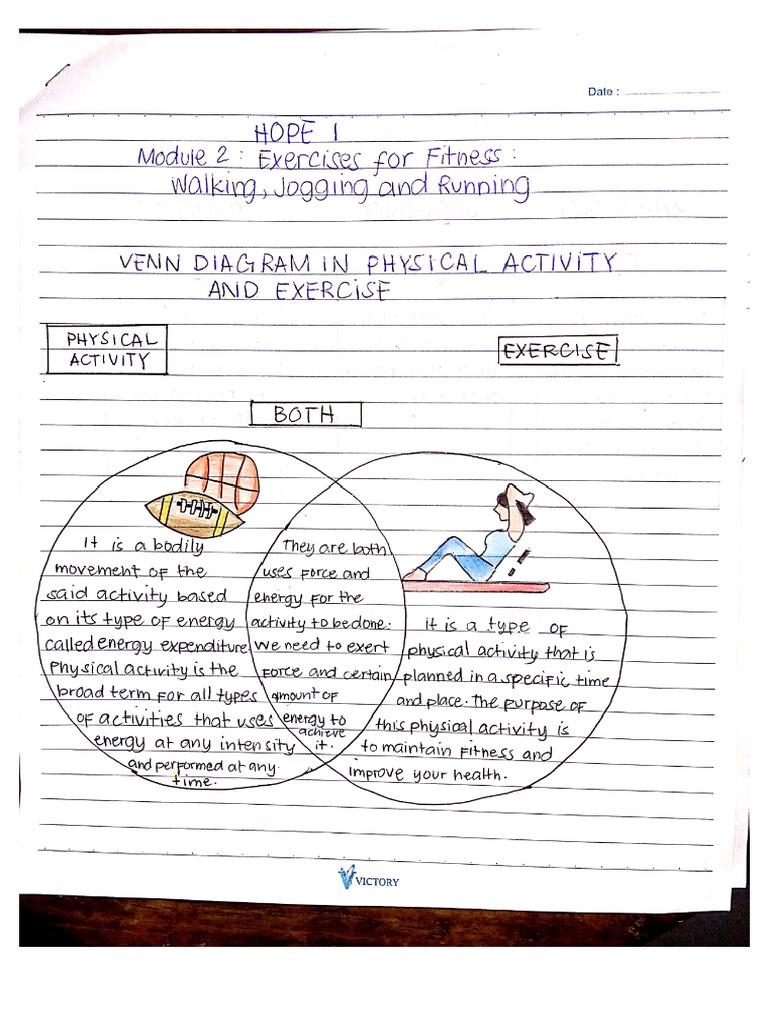 Date :
HOPE 1
Module 2 : Exercises for Fitness :
Walking, Jogging and Running
VENN DIAGRAM IN PHYSICAL ACTIVITY
AND EXERCISE
PHYSICAL
ACTIVITY
EXERCISE
BOTH
It is a bodily
movement of the
said activity based
on its type of energy
called energy expenditure
Physical activity is the
broad term for all types
of activities that uses
energy at any intensity
and performed at any
time.
They are both
uses force and
energy for the
activity to be done.
We need to exert
force and certain
amount of
energy to
achieve
it.
it is a type of
physical activity that is
planned in a specific time
and place. The purpose of
this physical activity is
to maintain fitness and
improve your health.
VICTORY